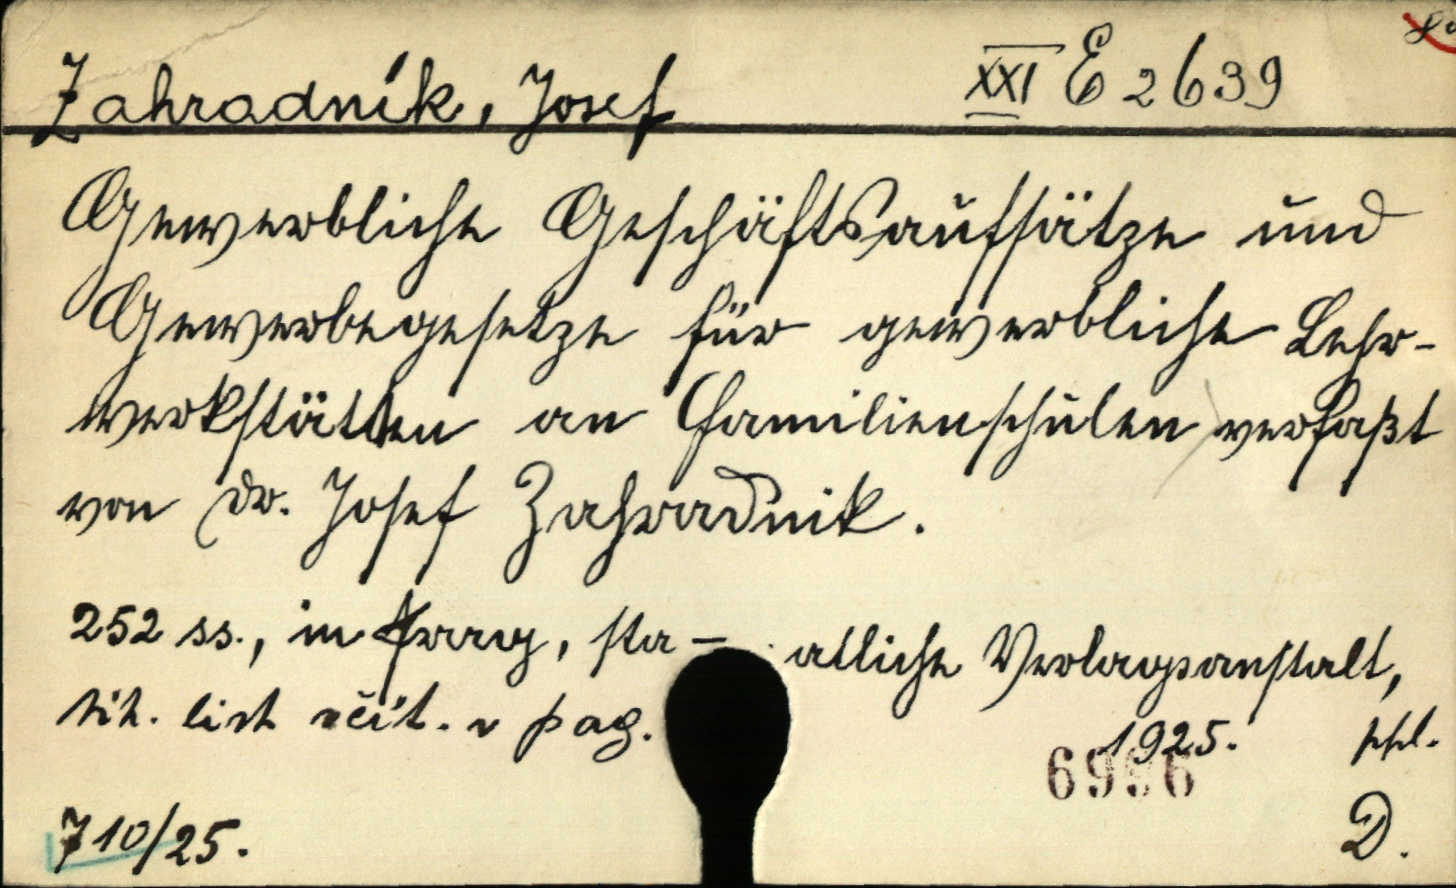 Zahradník, Josef XXI E 2639
Gewerbliche Geschäftsaufsätze und
Gewerbegesetze für gewerbliche Lehr-
werkstätten an Familienschulen verfaßt
von Dr. Josef Zahradnik.
252 ss., in Prag, sta- atliche Verlagsanstalt,
tit. list včít. v pag. 1925. ppl.
6996
710/25. D.